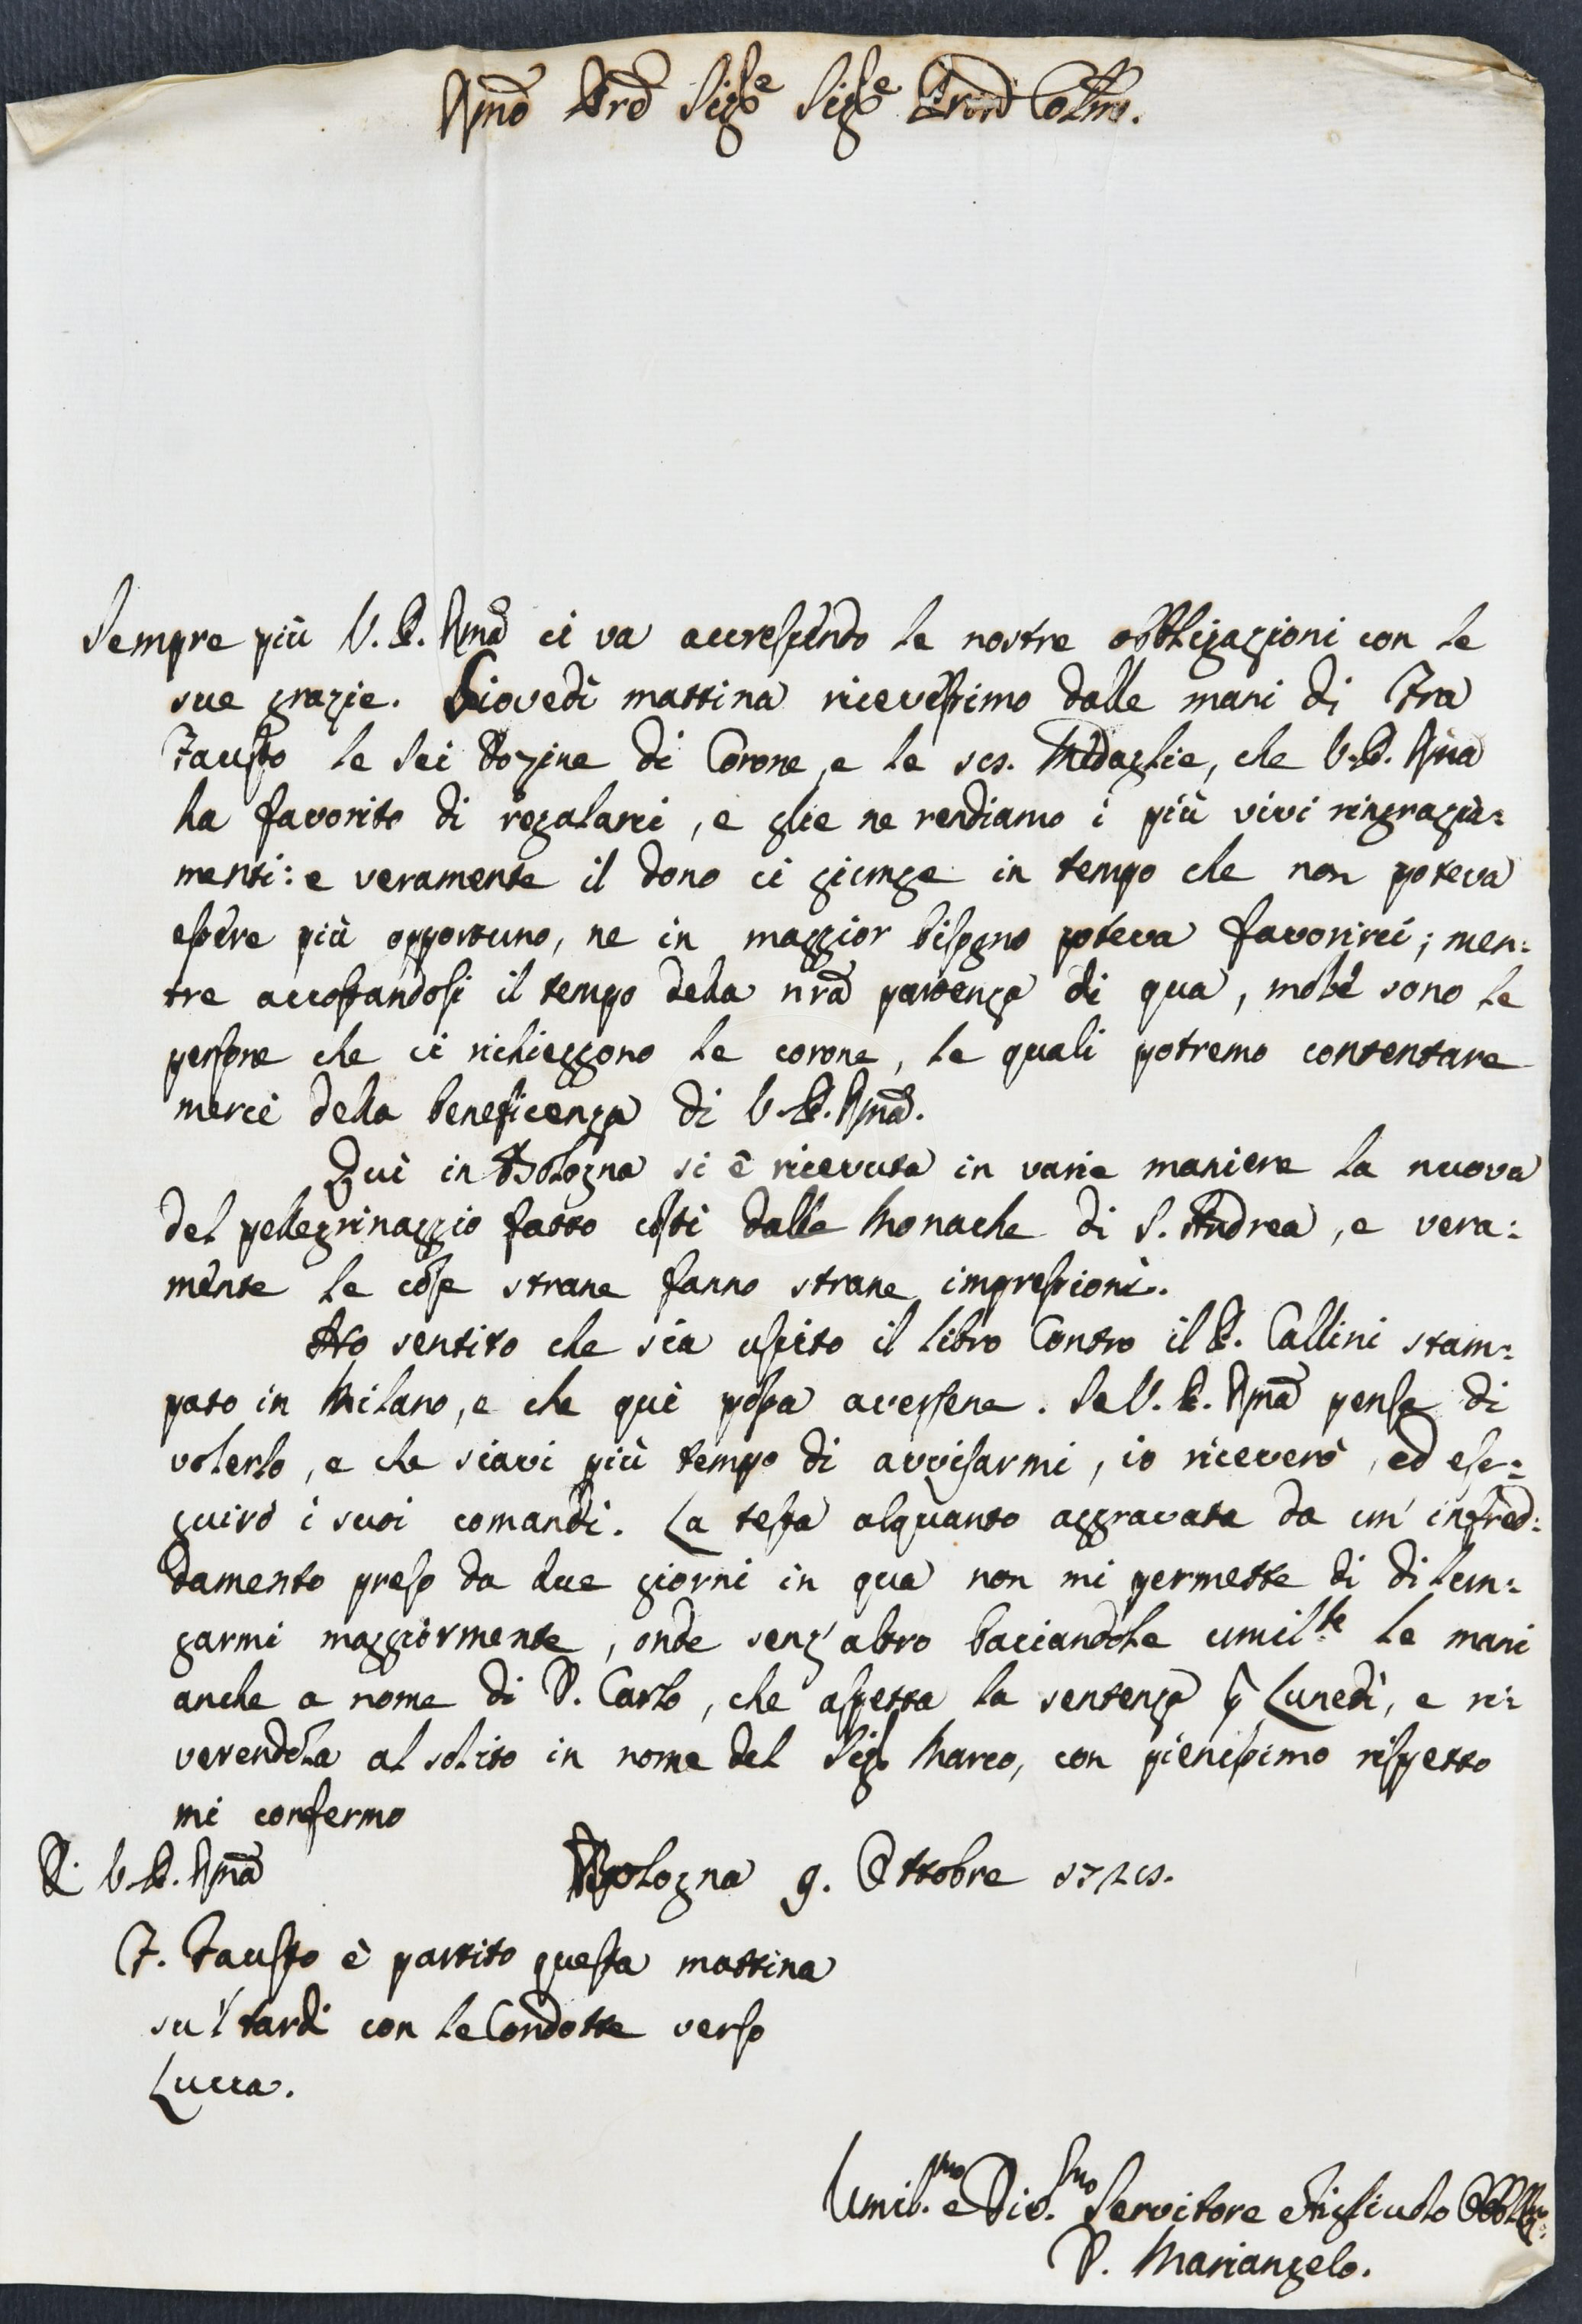 Rmo Pre Sigre Sigre Prone Colmo.
Sempre più V. P. Rma ci va accrescendo le nostre obbligazioni con le
sue grazie. Giovedì mattina ricevessimo dalle mani di Fra
Fausto le sei Dozine di Corone, e le Medaglie, che V. P. Rma
ha favorito di regalarci, e glie ne rendiamo i più vivi ringrazia=
menti: e veramente il dono ci giunge in tempo che non poteva
essere più opportuno, ne in maggior bisogno poteva favorirci; men=
tre accostandosi il tempo della nra partenza di qua, molte sono le
persone che ci richieggono le corone, le quali potremo contentare
mercè della beneficenza di V. P. Rma.
Qui in Bologna si è ricevuta in varie maniere la nuova
del pellegrinaggio fatto costì dalle Monache di S. Andrea, e vera=
mente le cose strane fanno strane impressioni.
Ho sentito che sia uscito il libro Contro il P. Callini stam=
pato in Milano, e che qui possa aversene. Se V. P. Rma pensa di
volerlo, e che siavi più tempo di avvisarmi, io riceverò, ed ese=
guirò i suoi comandi. La testa alquanto aggravata da un' infred=
damento preso da due giorni in qua non mi permette di dilun=
garmi maggiormente, onde senz' altro baciandole umilte le mani
anche a nome di D. Carlo, che aspetta la sentenza p Lunedì, e ri=
verendola al solito in nome del Sigr Marco, con pienissimo rispetto
mi confermo
Di V. P. Rma Bologna 9. Ottobre
F. Fausto è partito questa mattina
su'l tardi con le Condotte verso
Lucca.
Umil.mo e Div.mo Servitore e Figliuolo
D. Mariangelo.